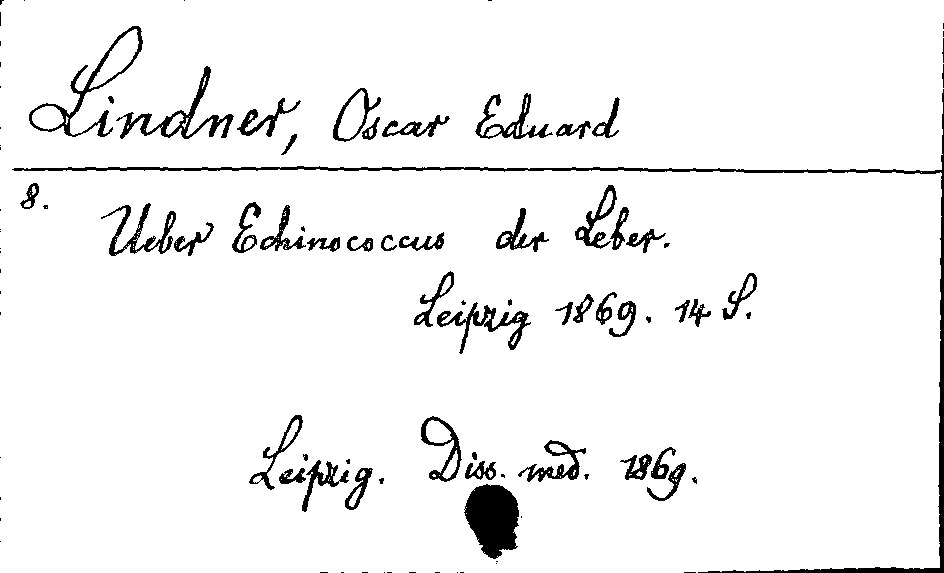 Lindner, Oscar Eduard
8.
Ueber Echinococcus der Leber.
Leipzig 1869. 14 S.
Leipzig. Diss. med. 1869.